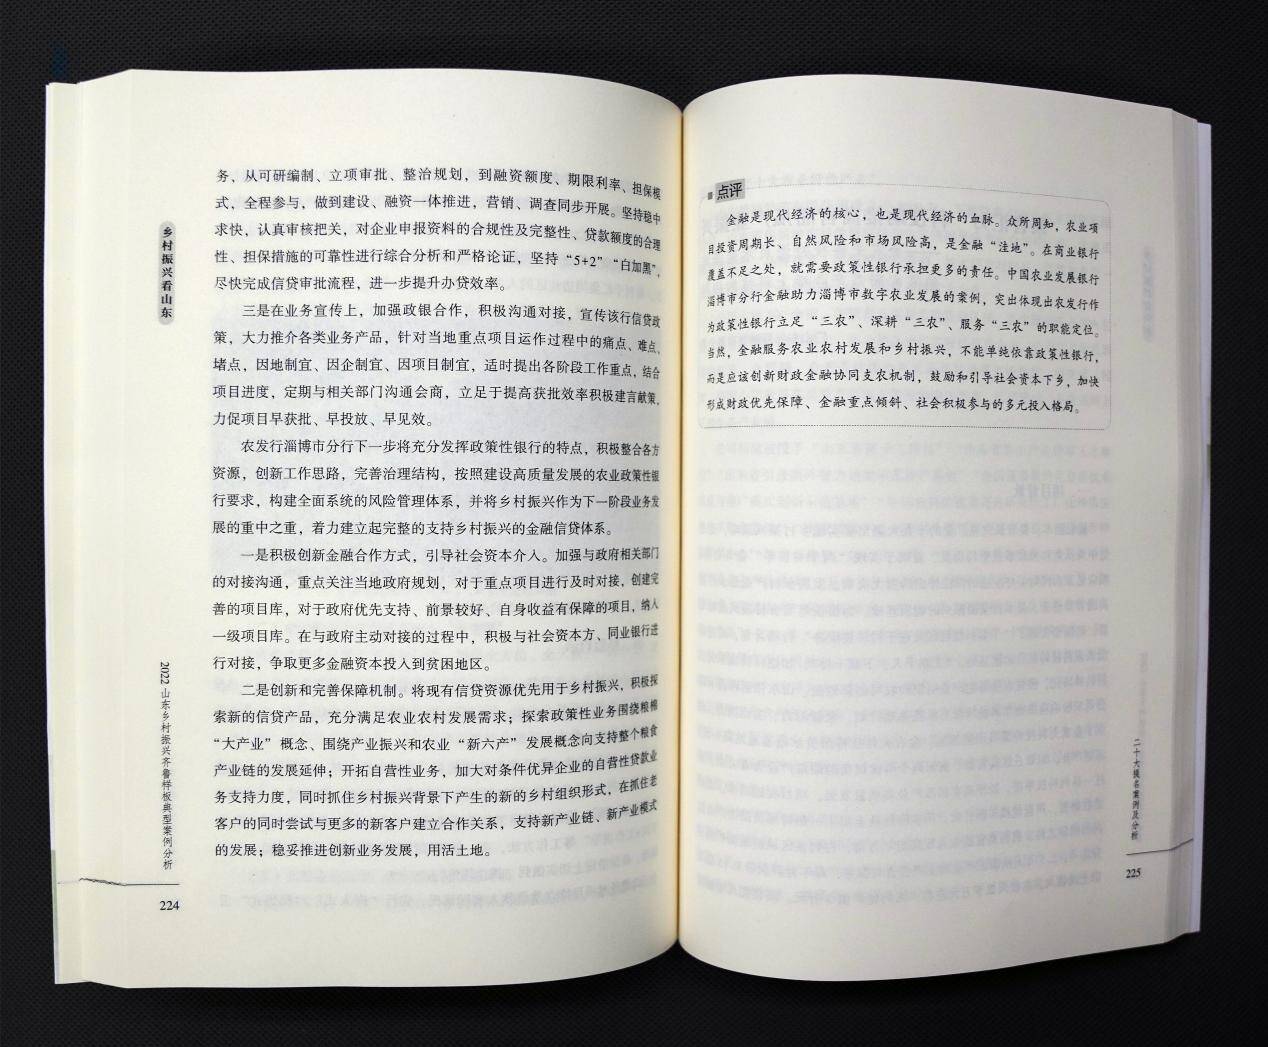 务，从可研编制、立项审批、整治规划，到融资额度、期限利率、担保模
式，全程参与，做到建设、融资一体推进，营销、调查同步开展。坚持稳中
求快，认真审核把关，对企业申报资料的合规性及完整性、贷款额度的合理
性、担保措施的可靠性进行综合分析和严格论证，坚持“5+2”“白加黑”，
尽快完成信贷审批流程，进一步提升办贷效率。
三是在业务宣传上，加强政银合作，积极沟通对接，宣传该行信贷政
策，大力推介各类业务产品，针对当地重点项目运作过程中的痛点、难点、
堵点，因地制宜、因企制宜、因项目制宜，适时提出各阶段工作重点，结合
项目进度，定期与相关部门沟通会商，立足于提高获批效率积极建言献策，
力促项目早获批、早投放、早见效。
农发行淄博市分行下一步将充分发挥政策性银行的特点，积极整合各方
资源，创新工作思路，完善治理结构，按照建设高质量发展的农业政策性银
行要求，构建全面系统的风险管理体系，并将乡村振兴作为下一阶段业务发
展的重中之重，着力建立起完整的支持乡村振兴的金融信贷体系。
一是积极创新金融合作方式，引导社会资本介入。加强与政府相关部门
的对接沟通，重点关注当地政府规划，对于重点项目进行及时对接，创建完
善的项目库，对于政府优先支持、前景较好、自身收益有保障的项目，纳入
一级项目库。在与政府主动对接的过程中，积极与社会资本方、同业银行进
行对接，争取更多金融资本投入到贫困地区。
二是创新和完善保障机制。将现有信贷资源优先用于乡村振兴，积极探
索新的信贷产品，充分满足农业农村发展需求；探索政策性业务围绕粮棉
“大产业”概念、围绕产业振兴和农业“新六产”发展概念向支持整个粮食
产业链的发展延伸；开拓自营性业务，加大对条件优异企业的自营性贷款业
务支持力度，同时抓住乡村振兴背景下产生的新的乡村组织形式，在抓住老
客户的同时尝试与更多的新客户建立合作关系，支持新产业链、新产业模式
的发展；稳妥推进创新业务发展，用活土地。
乡村振兴看山东
2022山东乡村振兴齐鲁样板典型案例分析
224
点评
金融是现代经济的核心，也是现代经济的血脉。众所周知，农业项
目投资周期长、自然风险和市场风险高，是金融“洼地”。在商业银行
覆盖不足之处，就需要政策性银行承担更多的责任。中国农业发展银行
淄博市分行金融助力淄博市数字农业发展的案例，突出体现出农发行作
为政策性银行立足“三农”、深耕“三农”、服务“三农”的职能定位。
当然，金融服务农业农村发展和乡村振兴，不能单纯依靠政策性银行，
而是应该创新财政金融协同支农机制，鼓励和引导社会资本下乡，加快
形成财政优先保障、金融重点倾斜、社会积极参与的多元投入格局。
二十六提名案例及分析
225